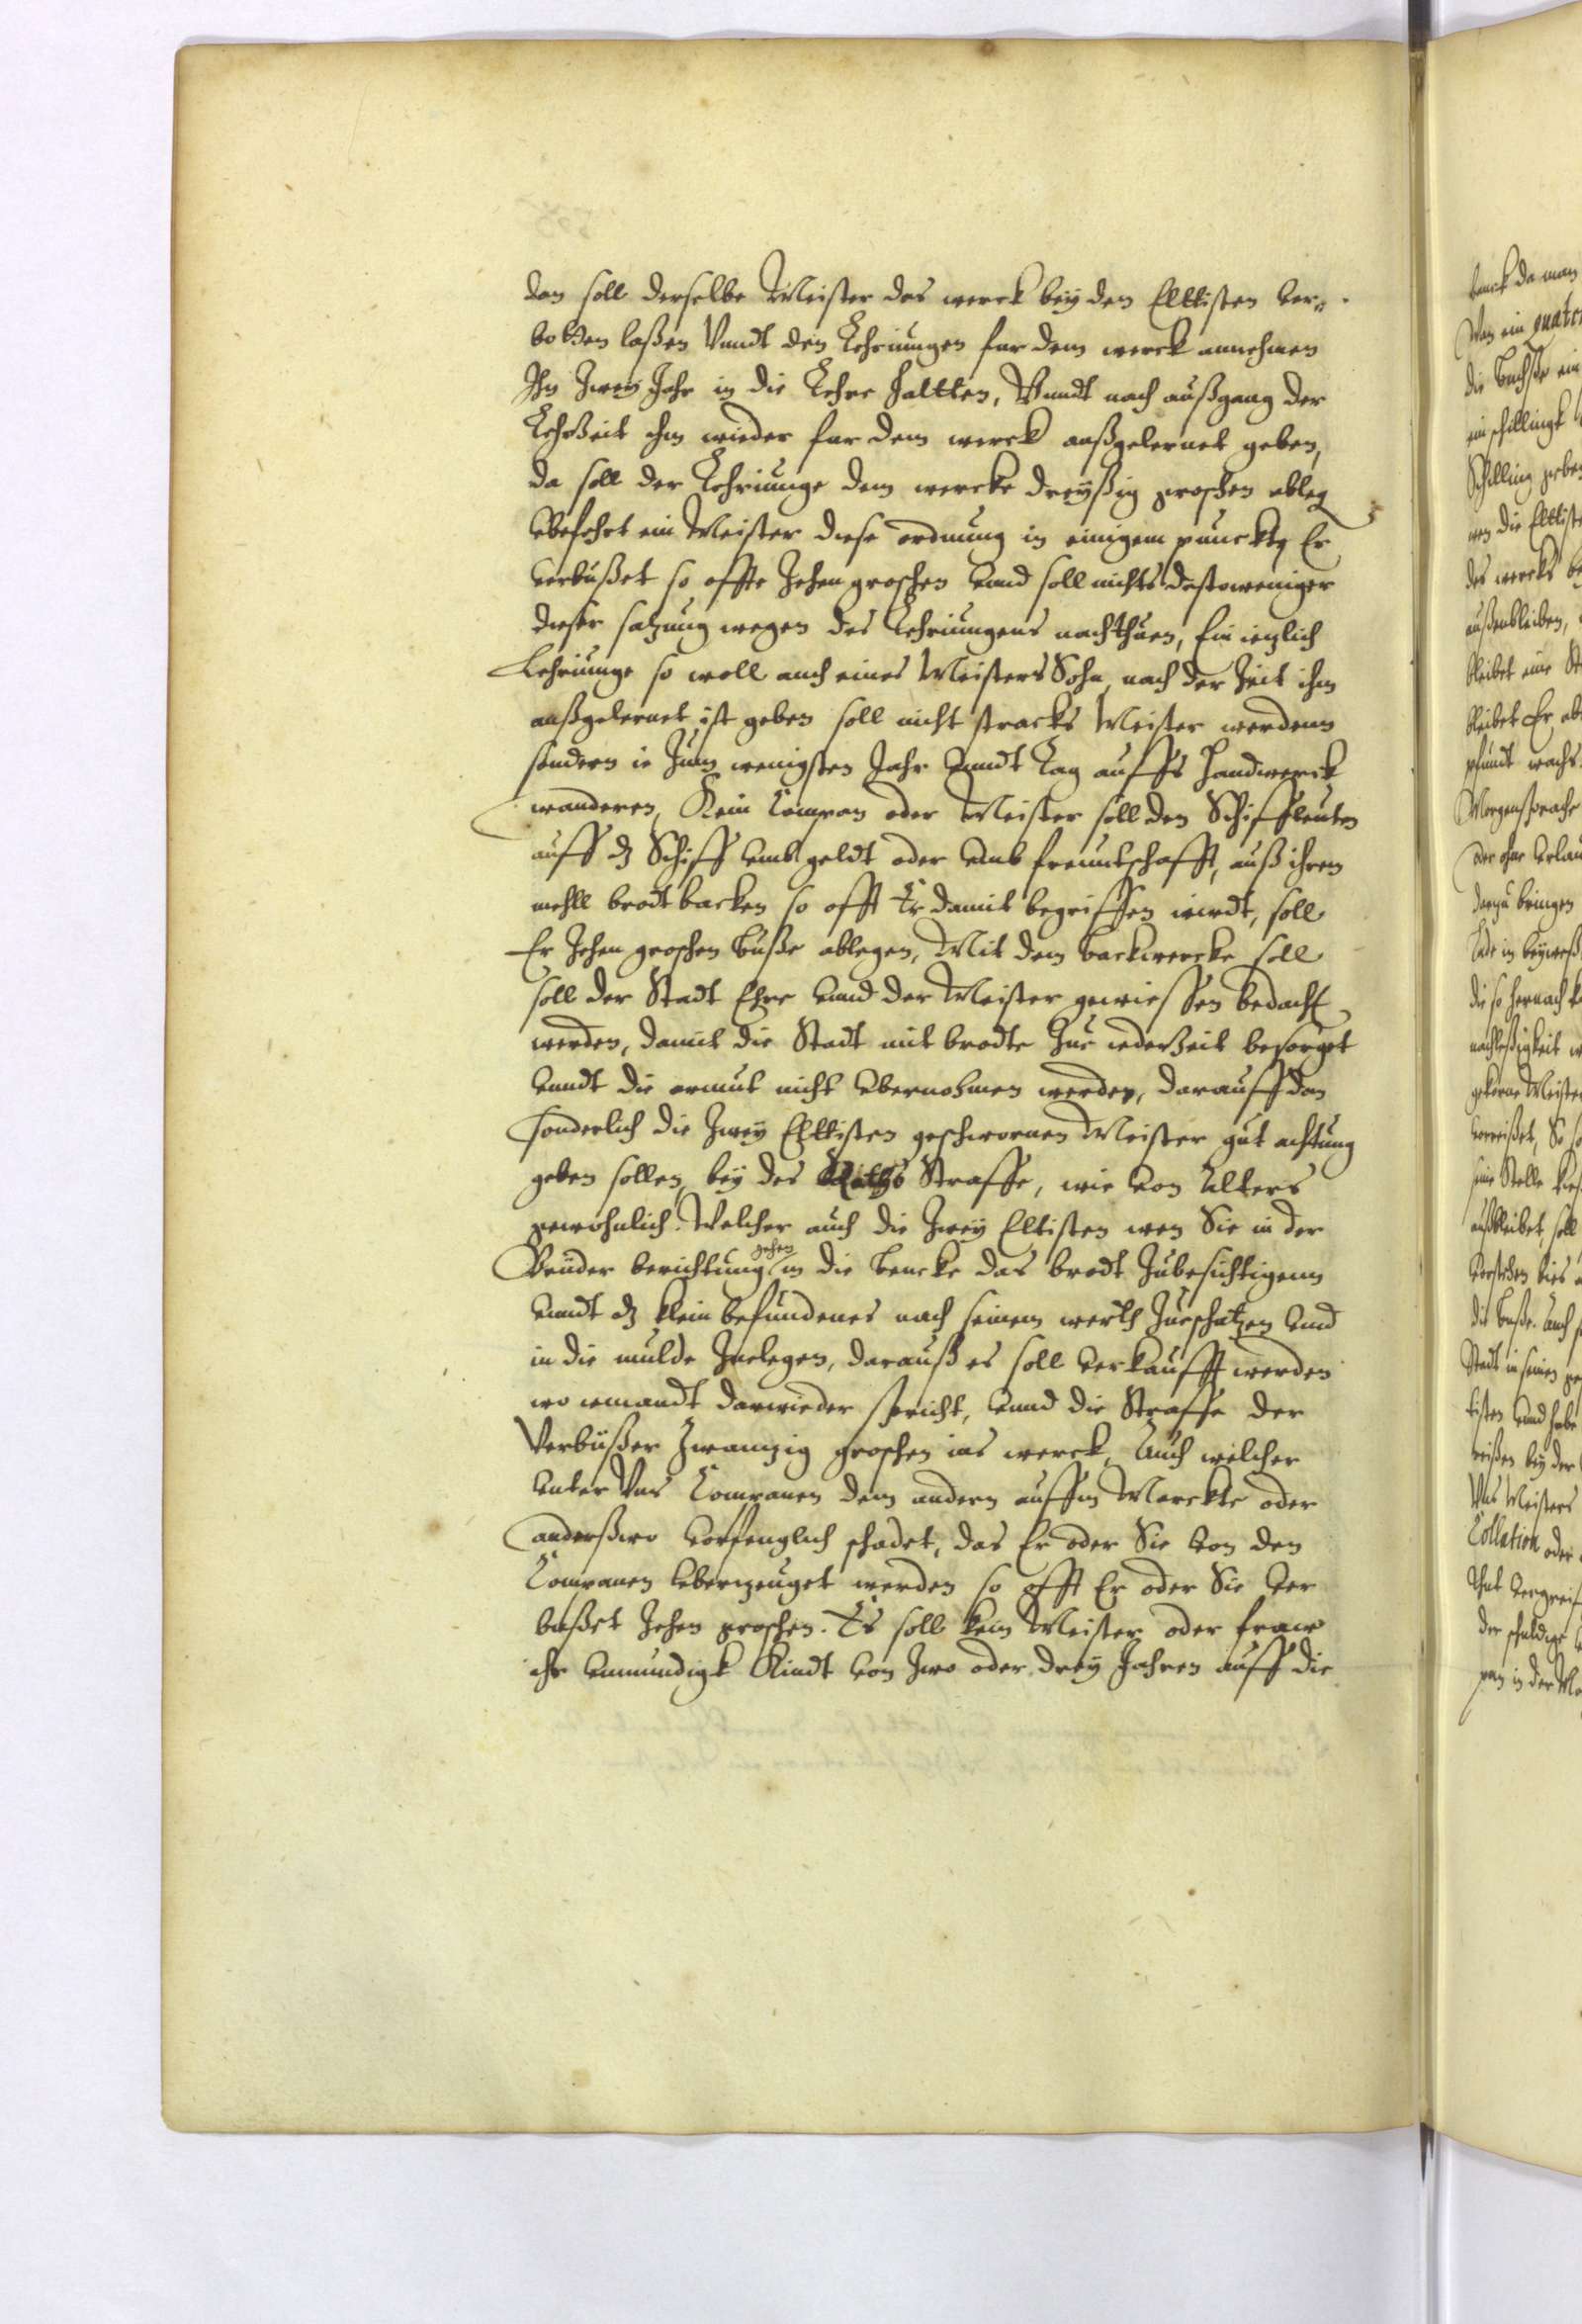 dan soll derselbe Meister das werck bey den Elltisten ver„
botten laßen Vundt den Lehriungen fur dem werck annehmen
Ihn Zwey Jahr in die Lehre haltten, Vundt nach außgang der
Lehrzeit ihm wieder fur dem werck außgelernet geben,
da soll der Lehriunge dem wercke dreyßig groschen ableg
Vbefehrt ein Meister diese ordnung in einigem punckten Er
verbußet so offte Zehen groschen vund soll nichts destoweniger
dieser satzung wegen des Lehriungens nachthuen, Ein ietzlich
Lehriunge so woll auch eines Meisters Sohn, nach der Zeit ihm
außgelernet ist geben soll nicht stracks Meister werdenn
sondern ie Zum wenigsten Jahr vundt Tag auffs Handwerck
wanderen, Kein Compan oder Meister soll den Schiffleuten
auff dz Schiff vmb geldt oder vmb freuntschafft, auß ihrem
mehll brodt backen so offt Er damit begriffen wirdt, soll
Er Zehen groschen buße ablegen, Mit dem backwercke soll
soll der Stadt Ehre vund der Meister gewießen bedacht
werden, damit die Stadt mit brodte Zue iederzeit besorget
vundt die armut nicht vbernohmen werden, darauff dan
sonderlich die Zwey Elltisten geschwornen Meister gut achtung
geben sollen, bey des Raths Straffe, wie von Alters
gewohnlich. Welcher auch die Zwey Eltisten wen Sie in der
Brüder berichtung gehen in die bencke das brodt Zubesichtigenn
vundt dz klein befundenes nach seinem werth Zueschatzen vund
in die mulde Zuelegen, darauß es soll verkaufft werden
wo iemandt darwieder spricht, vund die Straffe der
Verbüßer Zwanzig groschen ins werck, Auch welcher
vnter Vns Companen dem andern auffm Marckte oder
anderßwo vorfenglich schadet, das Er oder Sie von den
Companen vberzeuget werden so offt Er oder Sie ver
bußet Zehen groschen. Es soll kein Meister oder fraw
ihr vnmundigk Kindt von Zwo oder drey Jahren auff die
banck da man
Wan ein quatem
die buchße ein
ein schillingk
Schilling geben
wen die Elltist
des wercks be
außenbleiben,
bleibet eine St
bleibet Er ab
pfundt wachs
Morgensprache
der ohne Erlau
darzu bringen
lade in beyweß
die so hernach k
nachleßigkeit w
gekorne Meister
seine Stelle
außbleibet, soll
die buße. Auch
Stadt in seinen
tisten vund habe
beißen bey der
Vns Meisters
Collation oder
That vergreif
der schuldige